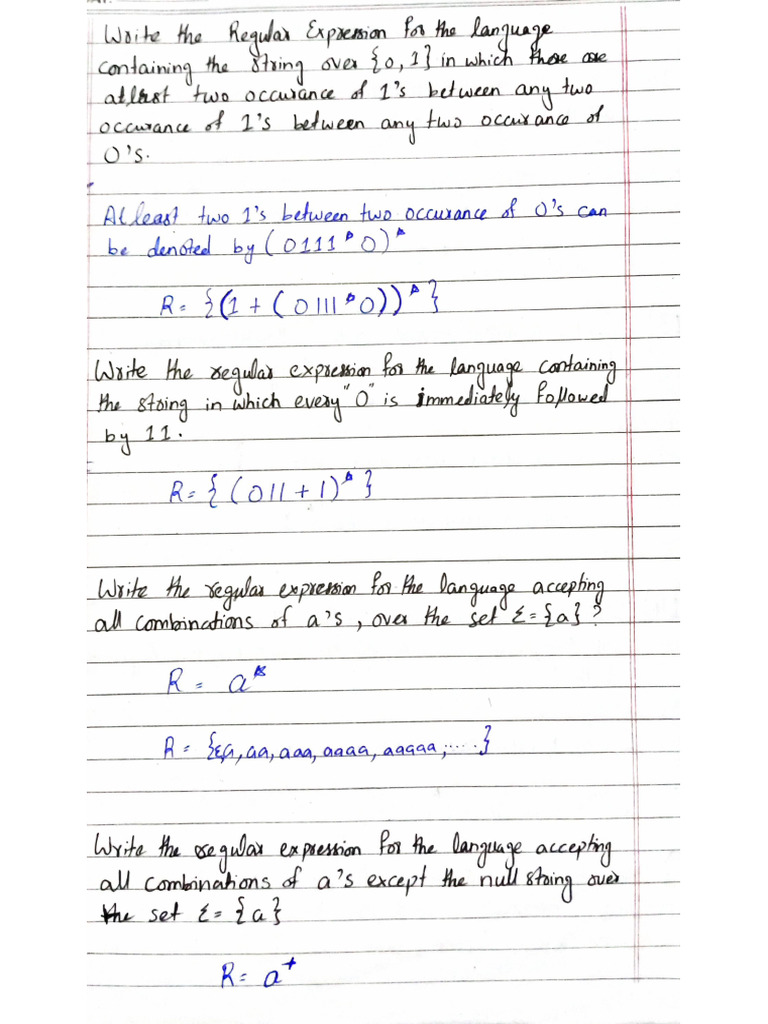 Write the Regular Expression for the language
containing the string over {0,1} in which there are
atleast two occurance of 1's between any two
occurance of 1's between any two occurance of
0's.
At least two 1's between two occurance of 0's can
be denoted by (0111*0)*
R= {(1+(0111*0))*}
Write the regular expression for the language containing
the string in which every "0" is immediately followed
by 11.
R= {(011+1)*}
Write the regular expression for the language accepting
all combinations of a's, over the set Σ={a}?
R= a*
R= {ε,a,aa,aaa,aaaa,aaaaa,.....}
Write the regular expression for the language accepting
all combinations of a's except the null string over
the set Σ={a}
R= a+